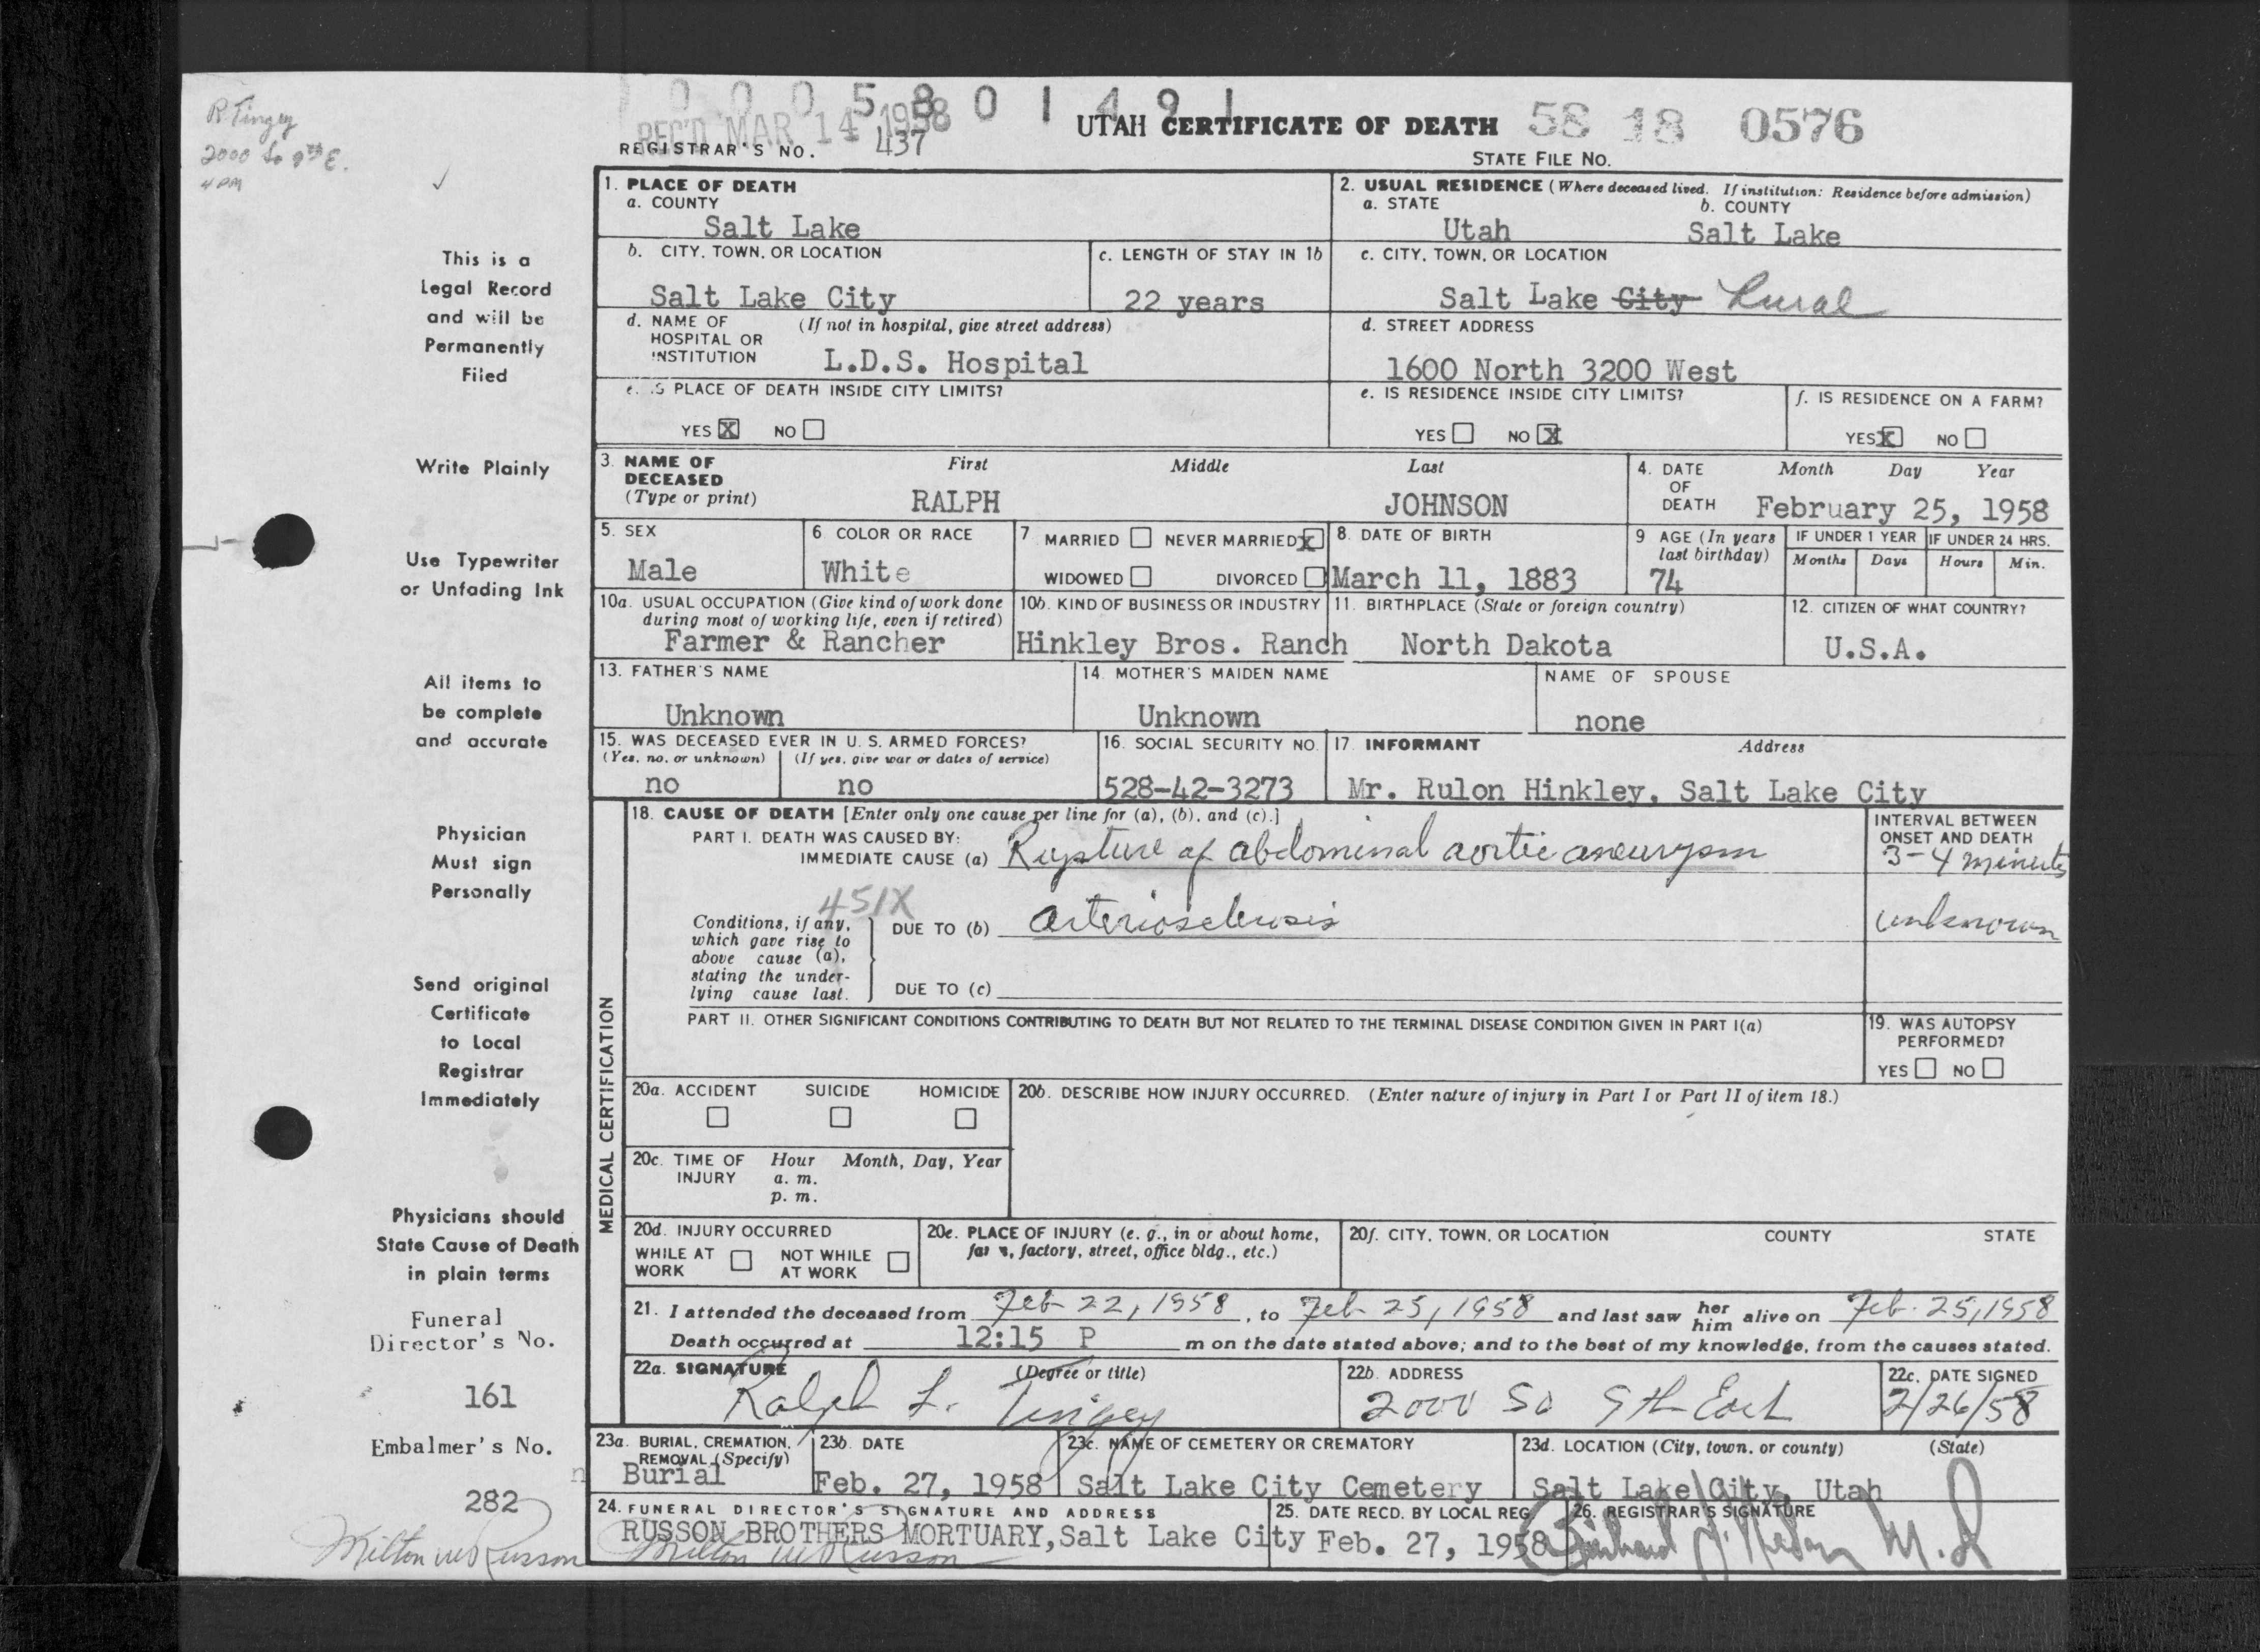 R Tingey
2000 So 9th E.
4 PM
0 0 0 5 8 0 1 4 9 1
REC'D MAR 14 1958
REGISTRAR'S NO. 437
UTAH CERTIFICATE OF DEATH 58 18 0576
STATE FILE NO.
This is a
Legal Record
and will be
Permanently
Filed
Write Plainly
Use Typewriter
or Unfading Ink
All items to
be complete
and accurate
Physician
Must sign
Personally
Send original
Certificate
to Local
Registrar
Immediately
Physicians should
State Cause of Death
in plain terms
Funeral
Director's No.
161
Embalmer's No.
282
Milton W Russon
1. PLACE OF DEATH
a. COUNTY
Salt Lake
2. USUAL RESIDENCE (Where deceased lived. If institution: Residence before admission)
a. STATE b. COUNTY
Utah Salt Lake
b. CITY, TOWN, OR LOCATION
Salt Lake City
c. LENGTH OF STAY IN 1b
22 years
c. CITY, TOWN, OR LOCATION
Salt Lake City Rural
d. NAME OF (If not in hospital, give street address)
HOSPITAL OR
INSTITUTION L.D.S. Hospital
d. STREET ADDRESS
1600 North 3200 West
e. IS PLACE OF DEATH INSIDE CITY LIMITS?
YES X NO
e. IS RESIDENCE INSIDE CITY LIMITS?
YES NO X
f. IS RESIDENCE ON A FARM?
YES X NO
3. NAME OF First Middle Last
DECEASED
(Type or print) RALPH JOHNSON
4. DATE Month Day Year
OF
DEATH February 25, 1958
5. SEX
Male
6. COLOR OR RACE
White
7. MARRIED NEVER MARRIED X
WIDOWED DIVORCED
8. DATE OF BIRTH
March 11, 1883
9 AGE (In years
last birthday)
74
IF UNDER 1 YEAR IF UNDER 24 HRS.
Months Days Hours Min.
10a. USUAL OCCUPATION (Give kind of work done
during most of working life, even if retired)
Farmer & Rancher
10b. KIND OF BUSINESS OR INDUSTRY
Hinkley Bros. Ranch
11. BIRTHPLACE (State or foreign country)
North Dakota
12. CITIZEN OF WHAT COUNTRY?
U.S.A.
13. FATHER'S NAME
Unknown
14. MOTHER'S MAIDEN NAME
Unknown
NAME OF SPOUSE
none
15. WAS DECEASED EVER IN U. S. ARMED FORCES?
(Yes, no, or unknown) (If yes, give war or dates of service)
no no
16. SOCIAL SECURITY NO.
528-42-3273
17. INFORMANT Address
Mr. Rulon Hinkley, Salt Lake City
MEDICAL CERTIFICATION
18. CAUSE OF DEATH [Enter only one cause per line for (a), (b), and (c).]
PART I. DEATH WAS CAUSED BY:
IMMEDIATE CAUSE (a) Rupture of abdominal aortic aneurysm
INTERVAL BETWEEN
ONSET AND DEATH
3-4 minutes
451X
Conditions, if any,
which gave rise to
above cause (a),
stating the under-
lying cause last.
DUE TO (b) Arteriosclerosis
unknown
DUE TO (c)
PART II. OTHER SIGNIFICANT CONDITIONS CONTRIBUTING TO DEATH BUT NOT RELATED TO THE TERMINAL DISEASE CONDITION GIVEN IN PART I(a)
19. WAS AUTOPSY
PERFORMED?
YES NO
20a. ACCIDENT SUICIDE HOMICIDE
20b. DESCRIBE HOW INJURY OCCURRED. (Enter nature of injury in Part I or Part II of item 18.)
20c. TIME OF Hour Month, Day, Year
INJURY a. m.
p. m.
20d. INJURY OCCURRED
WHILE AT NOT WHILE
WORK AT WORK
20e. PLACE OF INJURY (e. g., in or about home,
farm, factory, street, office bldg., etc.)
20f. CITY, TOWN, OR LOCATION COUNTY STATE
21. I attended the deceased from Feb 22, 1958, to Feb 25, 1958 and last saw her him alive on Feb. 25, 1958
Death occurred at 12:15 P m on the date stated above; and to the best of my knowledge, from the causes stated.
22a. SIGNATURE (Degree or title)
Ralph L. Tingey
22b. ADDRESS
2000 So 9th East
22c. DATE SIGNED
2/26/58
23a. BURIAL, CREMATION,
REMOVAL (Specify)
Burial
23b. DATE
Feb. 27, 1958
23c. NAME OF CEMETERY OR CREMATORY
Salt Lake City Cemetery
23d. LOCATION (City, town, or county) (State)
Salt Lake City, Utah
24. FUNERAL DIRECTOR'S SIGNATURE AND ADDRESS
RUSSON BROTHERS MORTUARY, Salt Lake City
Milton W Russon
25. DATE RECD. BY LOCAL REG.
Feb. 27, 1958
26. REGISTRAR'S SIGNATURE
M.D